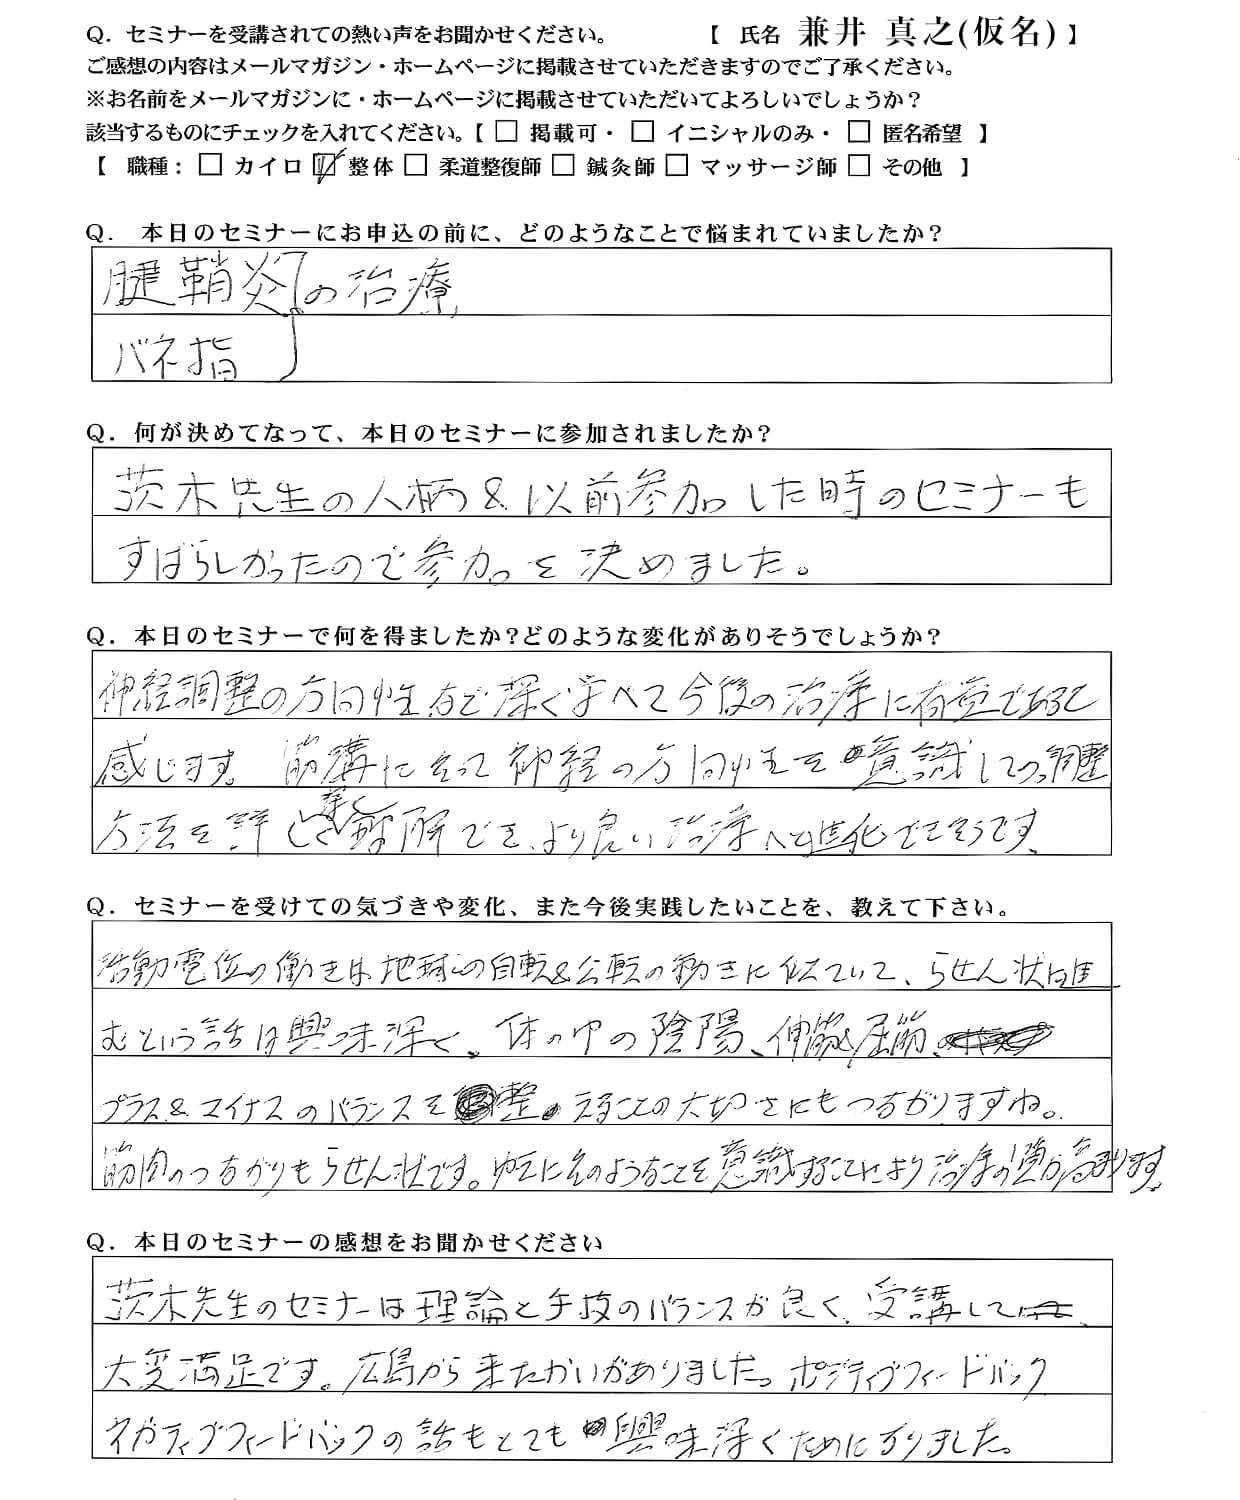 Q. セミナーを受講されての熱い声をお聞かせください。 【 氏名 兼井 真之(仮名) 】
ご感想の内容はメールマガジン・ホームページに掲載させていただきますのでご了承ください。
※お名前をメールマガジンに・ホームページに掲載させていただいてよろしいでしょうか？
該当するものにチェックを入れてください。【 □ 掲載可・ □ イニシャルのみ・ □ 匿名希望 】
【 職種： □ カイロ ☑ 整体 □ 柔道整復師 □ 鍼灸師 □ マッサージ師 □ その他 】
Q. 本日のセミナーにお申込の前に、どのようなことで悩まれていましたか？
腱鞘炎の治療
バネ指
Q. 何が決めてなって、本日のセミナーに参加されましたか？
茨木先生の人柄＆以前参加した時のセミナーも
すばらしかったので参加を決めました。
Q. 本日のセミナーで何を得ましたか？どのような変化がありそうでしょうか？
神経調整の方向性など深く学べて今後の治療に有益であると
感じます。筋膜にそって神経の方向性を意識しての調整
方法を詳しく深く解でき、より良い治療へと進化できそうです。
Q. セミナーを受けての気づきや変化、また今後実践したいことを、教えて下さい。
活動電位の働きは地球の自転＆公転の動きに似ていて、らせん状に進
むという話は興味深く、体の中の陰陽、伸筋と屈筋、
プラス＆マイナスのバランスを整えることの大切さにもつながりますね。
筋肉のつながりもらせん状です。ゆえにそのようなことを意識することにより治療の質が高まります。
Q. 本日のセミナーの感想をお聞かせください
茨木先生のセミナーは理論と手技のバランスが良く、受講して
大変満足です。広島から来たかいがありました。ポジティブフィードバック
ネガティブフィードバックの話もとても興味深くためになりました。